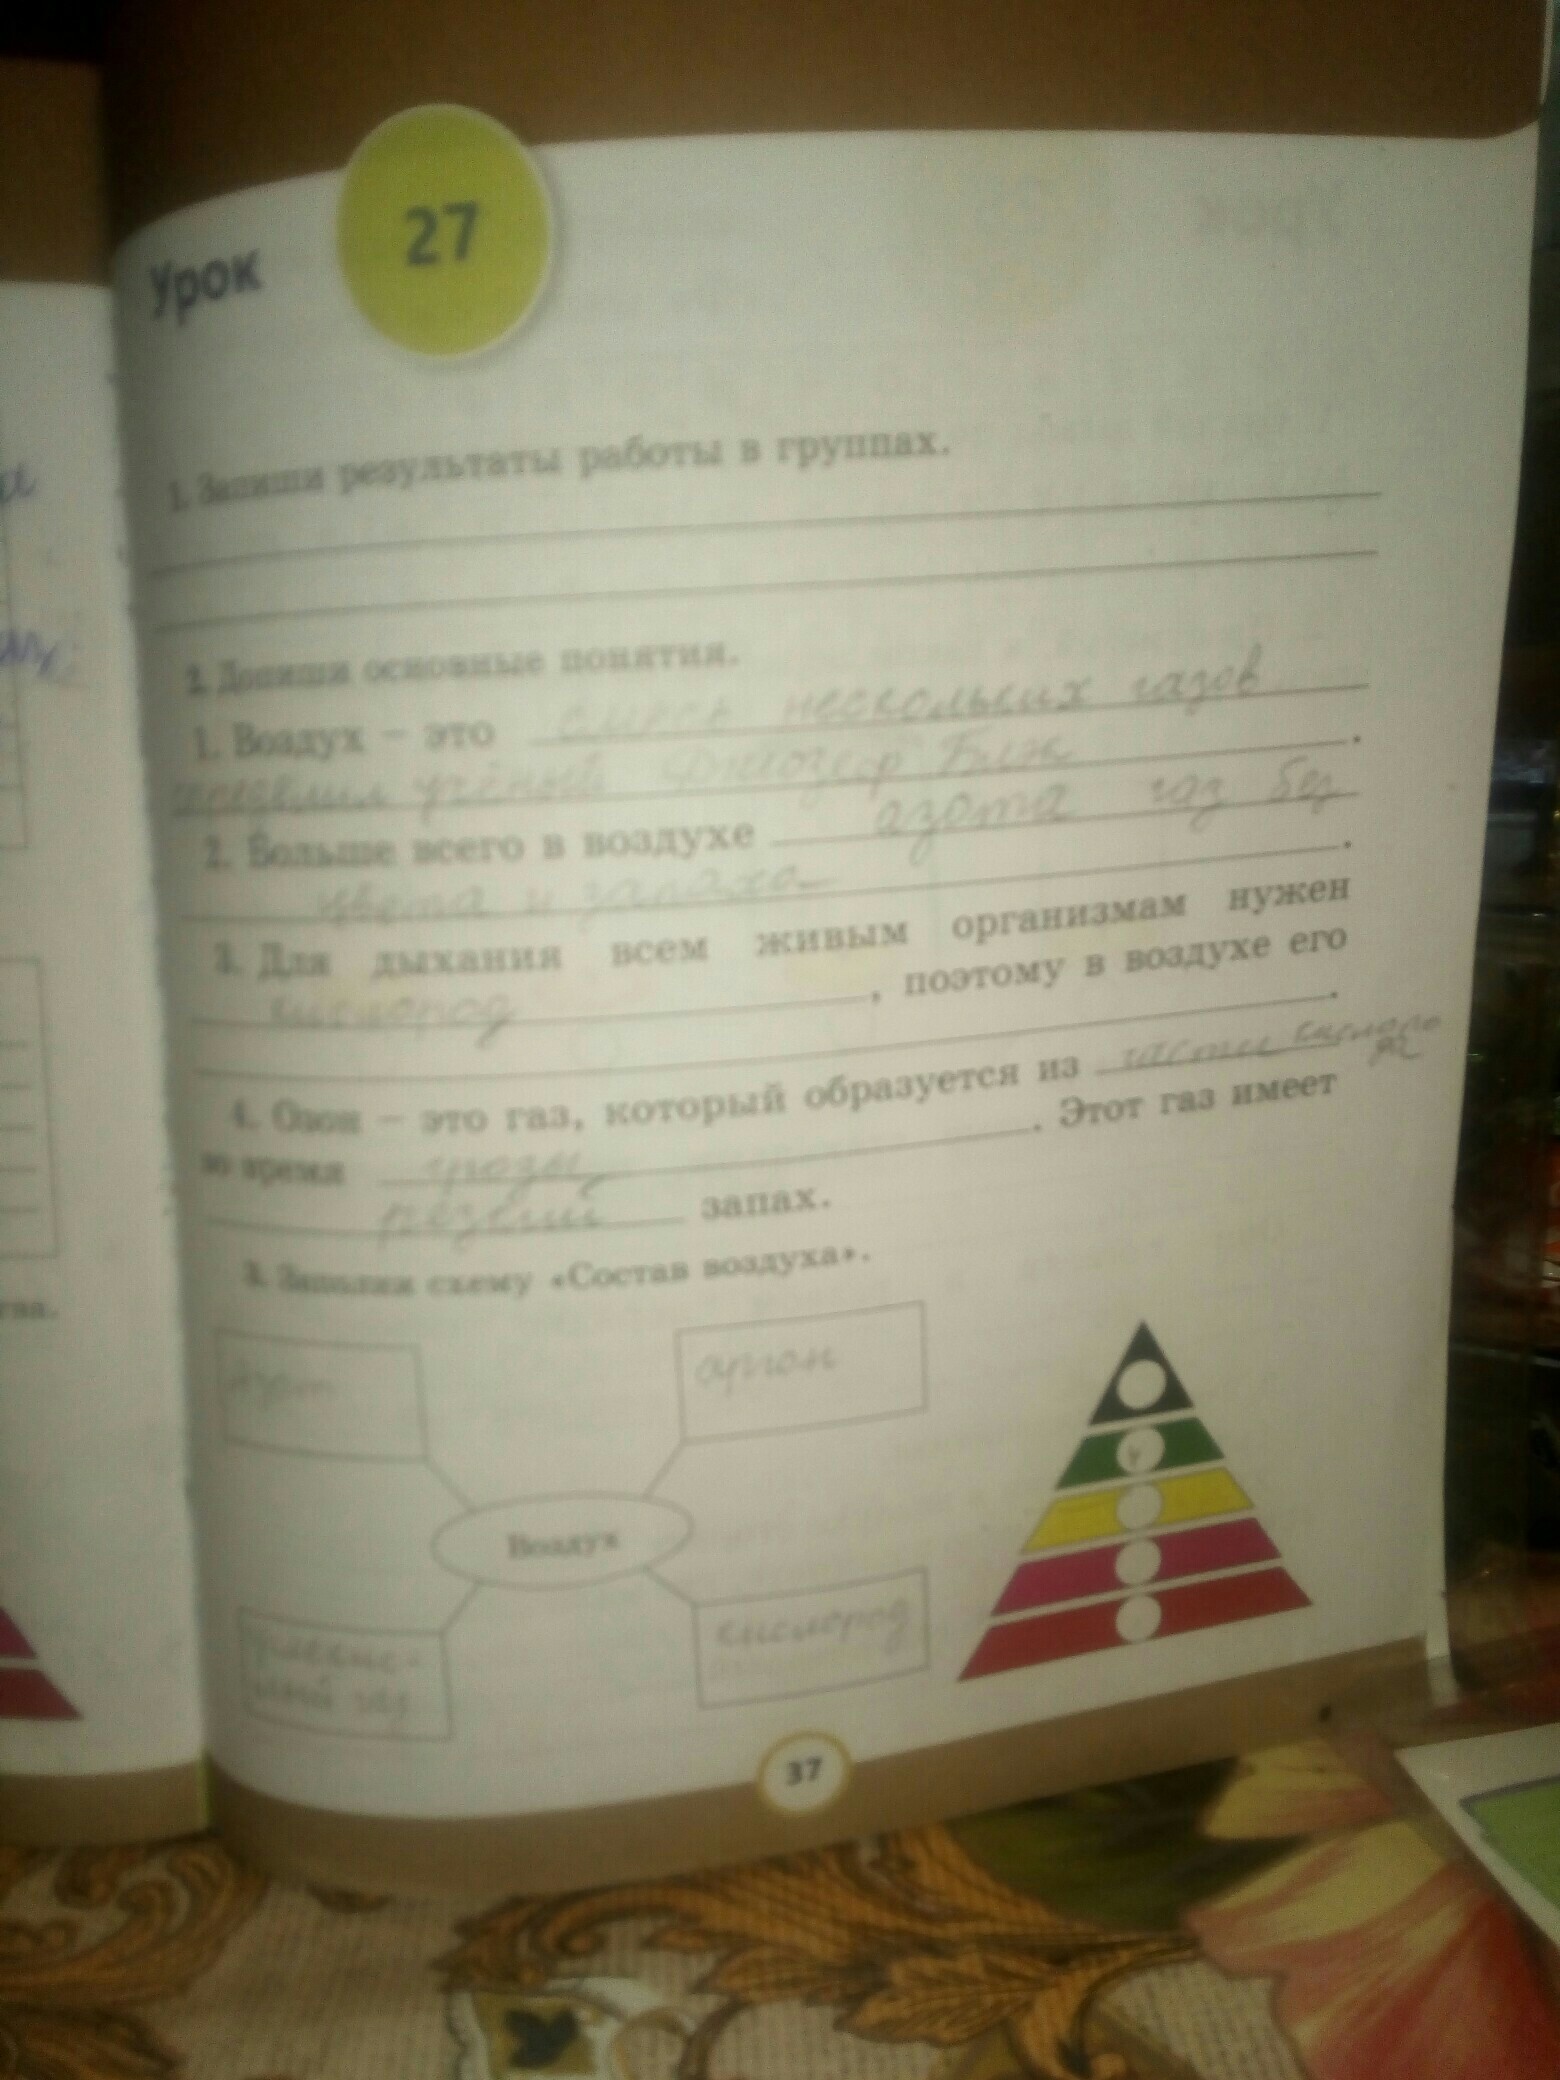 Урок 27
1. Запиши результаты работы в группах.
2. Допиши основные понятия.
1. Воздух – это смесь нескольких газов
учёный Джозеф Блэк.
2. Больше всего в воздухе азота газ без
цвета и запаха.
3. Для дыхания всем живым организмам нужен
кислород, поэтому в воздухе его
.
4. Озон – это газ, который образуется из части кислоро
да
во время грозы. Этот газ имеет
резкий запах.
3. Заполни схему «Состав воздуха».
азот
аргон
Воздух
углекис-
лый газ
кислород
37